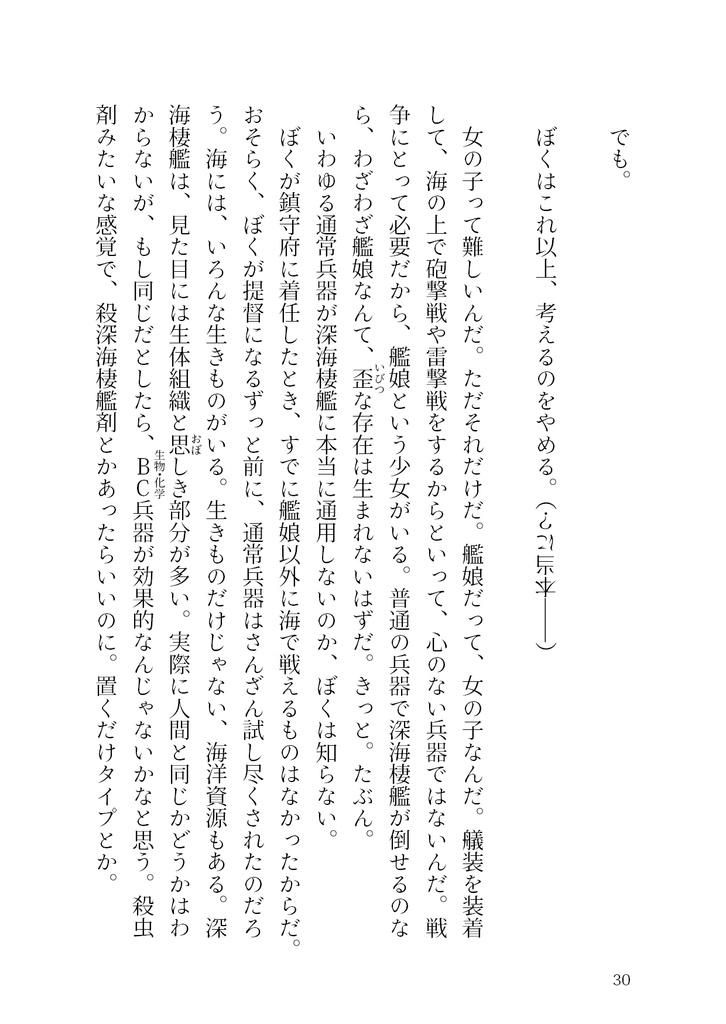 でも。
ぼくはこれ以上、考えるのをやめる。（――本当に？）
女の子って難しいんだ。ただそれだけだ。艦娘だって、女の子なんだ。艤装を装着
して、海の上で砲撃戦や雷撃戦をするからといって、心のない兵器ではないんだ。戦
争にとって必要だから、艦娘という少女がいる。普通の兵器で深海棲艦が倒せるのな
ら、わざわざ艦娘なんて、歪な存在は生まれないはずだ。きっと。たぶん。
いびつ
いわゆる通常兵器が深海棲艦に本当に通用しないのか、ぼくは知らない。
ぼくが鎮守府に着任したとき、すでに艦娘以外に海で戦えるものはなかったからだ。
おそらく、ぼくが提督になるずっと前に、通常兵器はさんざん試し尽くされたのだろ
う。海には、いろんな生きものがいる。生きものだけじゃない、海洋資源もある。深
海棲艦は、見た目には生体組織と思しき部分が多い。実際に人間と同じかどうかはわ
おぼ
からないが、もし同じだとしたら、ＢＣ兵器が効果的なんじゃないかなと思う。殺虫
生物・化学
剤みたいな感覚で、殺深海棲艦剤とかあったらいいのに。置くだけタイプとか。
30